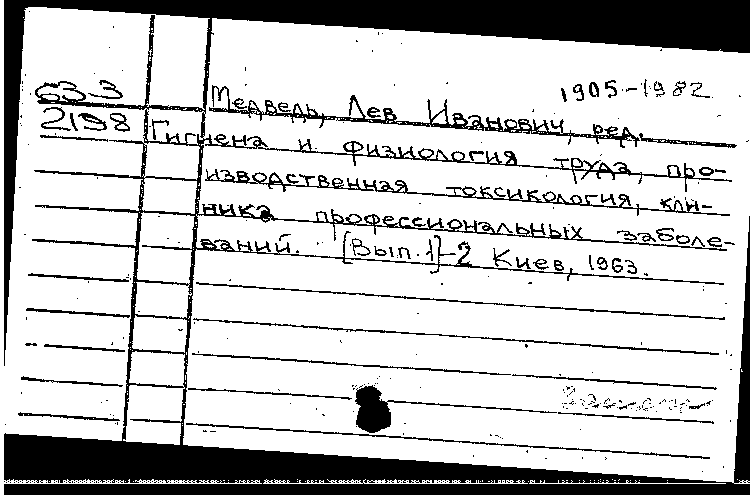 63-3 Медведь, Лев Иванович, ред. 1905-1982
2198 Гигиена и физиология труда, про-
изводственная токсикология, кли-
ника профессиональных заболе-
ваний. [Вып. 1]-2 Киев, 1963.